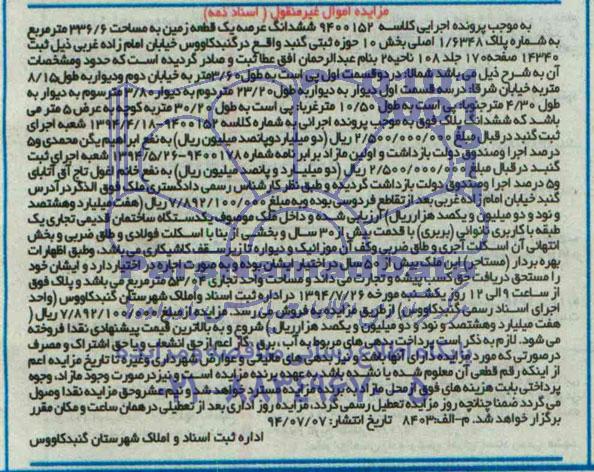 مزایده اموال غیرمنقول ( اسناد ذمه)
به موجب پرونده اجرایی کلاسه ۹۴۰۰۱۵۲ ششدانگ عرصه یک قطعه زمین به مساحت ۳۳۶/۶ مترمربع
به شماره پلاک ۱/۶۳۴۸ اصلی بخش ۱۰ حوزه ثبتی گنبد واقع در گنبدکاووس خیابان امام زاده غربی ذیل ثبت
۱۴۳۴۰ صفحه۱۷۰ جلد ۱۰۸ ناحیه۲ بنام عبدالرحمن افق عطا ثبت و صادر گردیده است که حدود ومشخصات
آن به شرح ذیل می باشد شمالا: در دوقسمت اول پی است به طول۳/۶۰متر به خیابان دوم ودیوار به طول۸/۱۵
متربه خیابان شرقا: درسه قسمت اول دیوار به دیواربه طول۲۳/۲۰ متردوم به دیوار ۳/۸۰ مترسوم به دیوار به
طول ۴/۳۰ مترجنوبا: پی است به طول ۱۰/۵۰ مترغربا: پی است به طول ۳۰/۲۰ متربه کوچه به عرض ۵ متر می
باشد که ششدانگ پلاک فوق به موجب پرونده اجرائی به شماره کلاسه ۹۴۰۰۱۵۲-۱۳۹۴/۴/۱۸ شعبه اجرای
ثبت گنبد در قبال مبلغ ۲/۵۰۰/۰۰۰/۰۰۰ ریال (دو میلیارد وپانصد میلیون ریال) به نفع ابراهیم یگن محمدی و۵
درصد اجرا وصندوق دولت بازداشت و اولین مازاد برابر نامه شماره ۹۴۰۰۱۷۸-۱۳۹۴/۵/۲۶ شعبه اجرای ثبت
گنبد در قبال مبلغ ۲/۵۰۰/۰۰۰/۰۰۰ ریال (دو میلیارد و پانصد میلیون ریال) به نفع خانم اغول تاج آق آتابای
و۵ درصد اجرا وصندوق دولت بازداشت گردیده و طبق نظر کارشناس رسمی دادگستری ملک فوق الذکر در آدرس
گنبد خیابان امام زاده غربی بعد از تقاطع فردوسی بوده وبه مبلغ ۷/۸۹۲/۱۰۰/۰۰۰ ریال (هفت میلیارد وهشتصد
و نود و دو میلیون و یکصد هزارریال) ارزیابی شده و داخل ملک موصوف یکدستگاه ساختمان قدیمی تجاری یک
طبقه با کاربری نانوائی (بربری) با قدمت بیش از ۳۰ سال و بخشی از بنا با اسکلت فولادی و طاق ضربی و بخش
انتهائی آن اسکلت آجری و طاق ضربی وکف آن موزائیک و دیواره تا زیر سقف کاشیکاری می باشد، وطبق اظهارات
بهره بردار (مستاجر) این ملک بیش از ۵۰ سال در اختیار ایشان بوده و به صورت اجاره در اختیار دارد و ایشان خود
را مستحق دریافت حق کسب پیشه و تجارت می داند و مساحت واحد تجاری ۵۳/۰۴ مترمربع می باشد و پلاک فوق
از ساعت ۹ الی ۱۲ روز یکشنبه مورخه ۱۳۹۴/۷/۲۶ در اداره ثبت اسناد واملاک شهرستان گنبدکاووس (واحد
اجرای اسناد رسمی گنبدکاووس) از طریق مزایده به فروش می رسد. مزایده از مبلغ ۷/۸۹۲/۱۰۰/۰۰۰ ریال
(هفت میلیارد وهشتصد و نود و دو میلیون و یکصد هزارریال) شروع و به بالاترین قیمت پیشنهادی نقدا فروخته
می شود. لازم به ذکر است پرداخت بدهی های مربوط به آب، برق، گاز اعم از حق انشعاب و یا حق اشتراک و مصرف
در صورتی که مورد مزایده دارای آنها باشد و نیز بدهی های مالیاتی و عوارض شهرداری و غیره تا تاریخ مزایده اعم
از اینکه رقم قطعی آن معلوم شده یا نشده باشد به عهده برنده مزایده است و نیز در صورت وجود مازاد، وجوه
پرداختی بابت هزینه های فوق از محل مازاد به برنده مزایده مسترد خواهد شد و نیم عشر و حق مزایده نقدا وصول
می گردد ضمنا چنانچه روز مزایده تعطیل رسمی گردد، مزایده روز اداری بعد از تعطیلی در همان ساعت و مکان مقرر
برگزار خواهد شد. م-الف:۸۴۰۳ تاریخ انتشار: ۹۴/۰۷/۰۷
اداره ثبت اسناد و املاک شهرستان گنبدکاووس